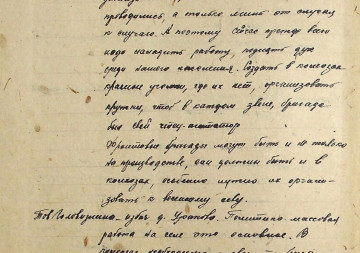 проводились, а только лишь от случая
к случаю. А поэтому сейчас прежде всего
надо наладить работу, поднять дух
среди нашего населения. Создать в колхозах
красные уголки, где их нет, организовать
кружки, чтоб в каждом звене, бригаде
был свой чтец-агитатор
Фронтовые бригады могут быть и не только
на производстве, они должны быть и в
колхозах, особенно нужно их органи-
зовать к весеннему севу.
Тов. Головизнина - избач д. Политико-массовая
работа на селе это основное. В